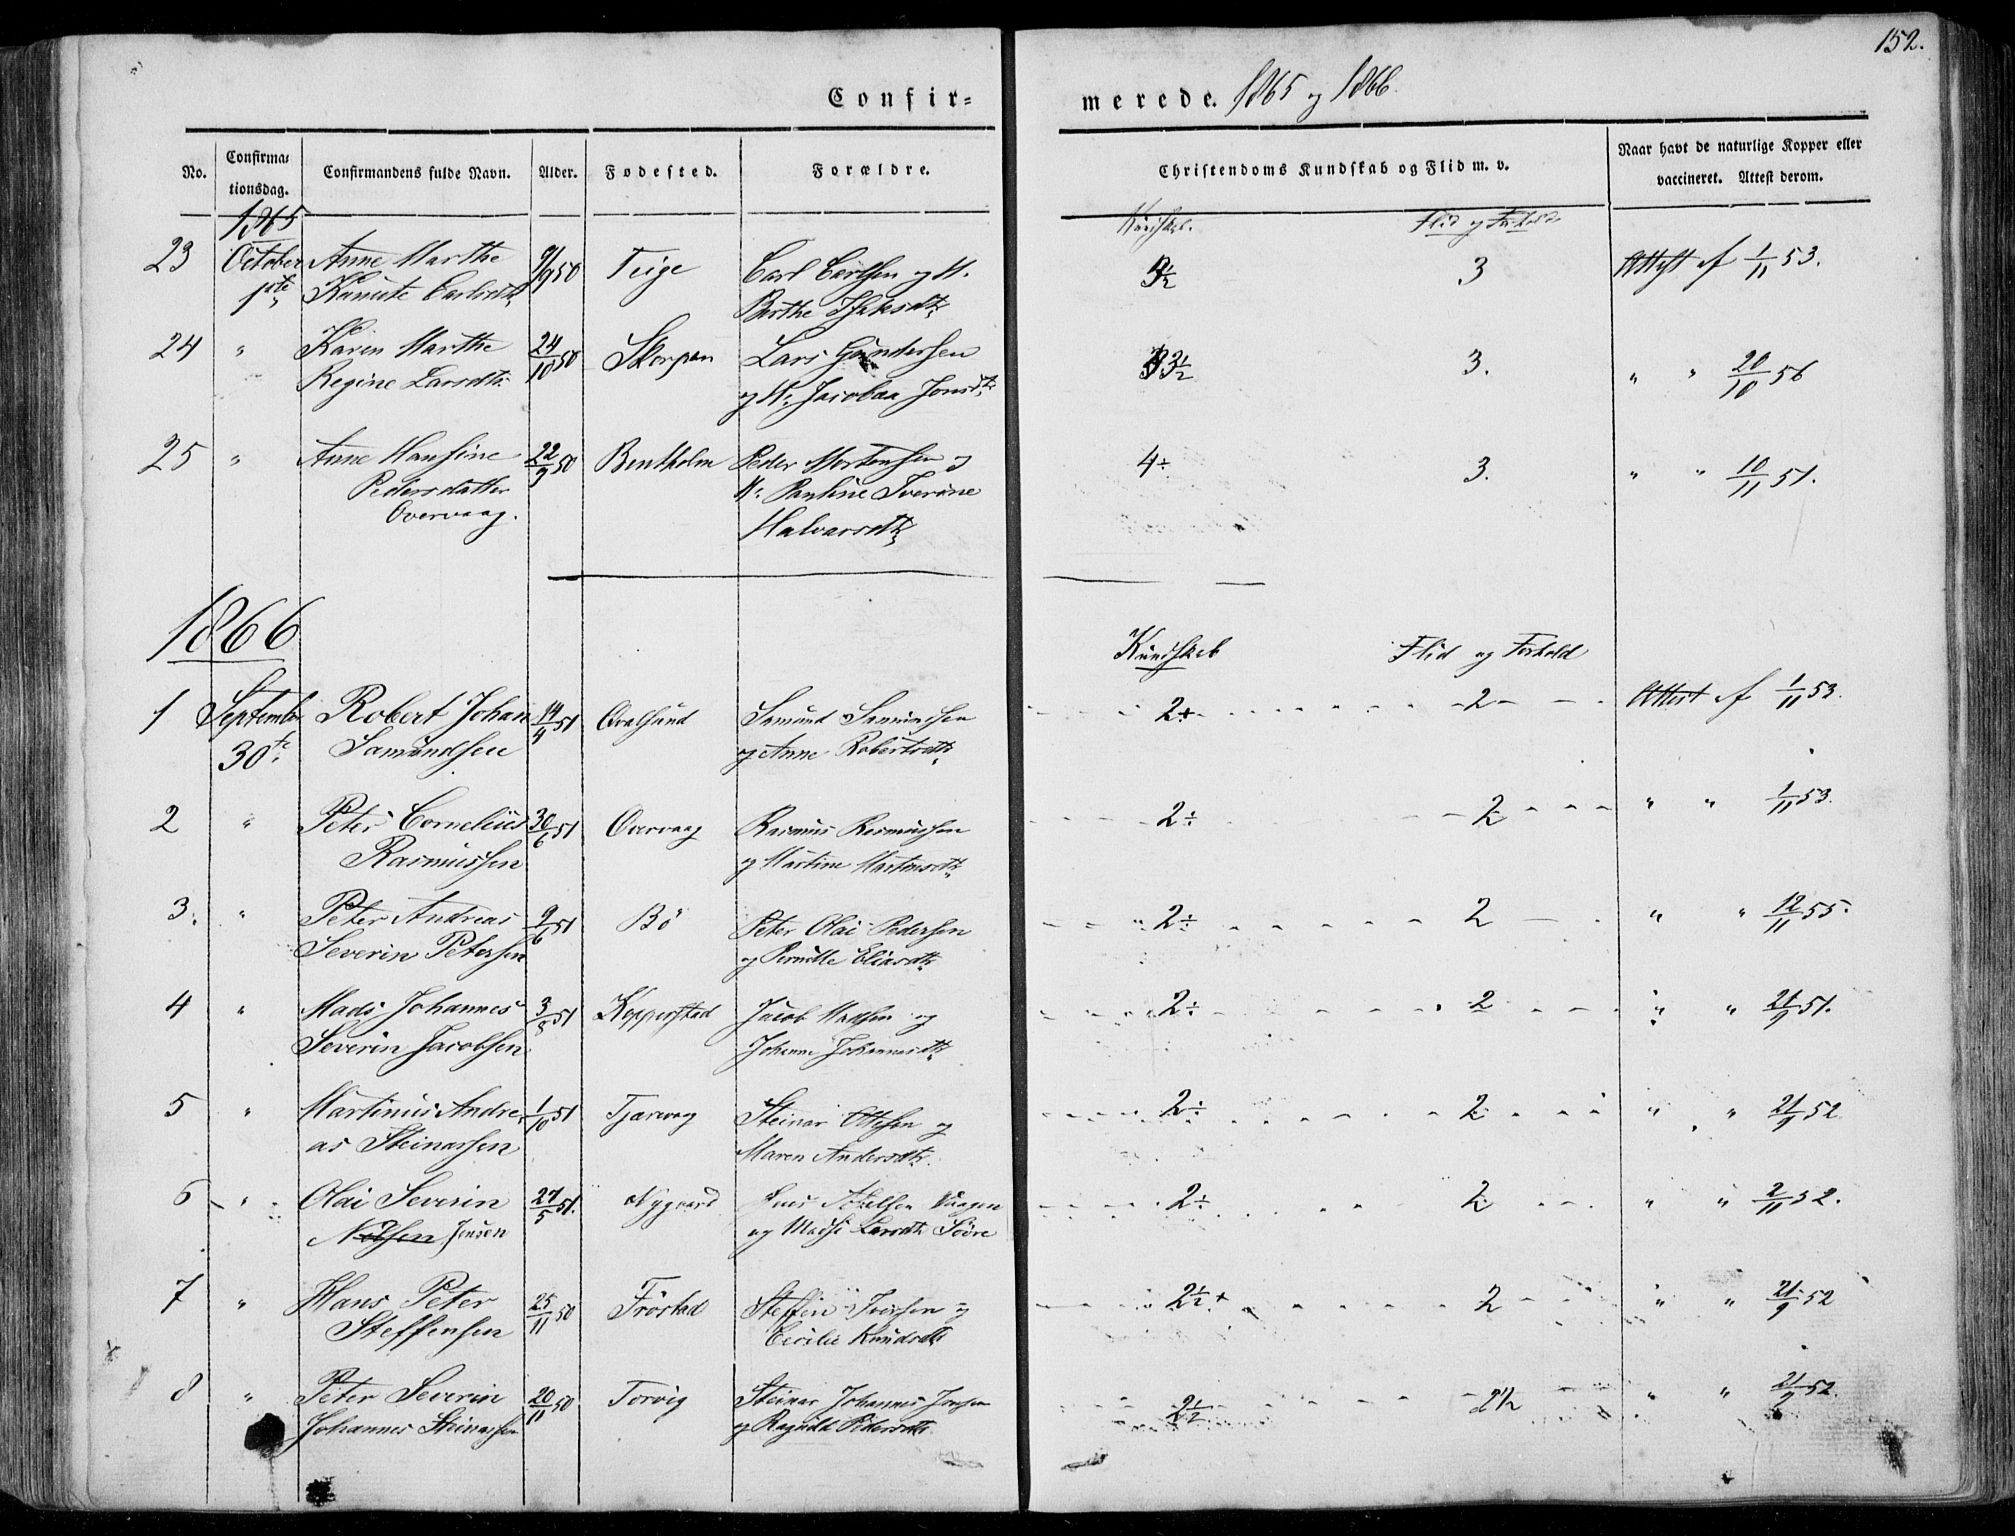 152.
Confir-
merede. 1865 og 1866.
No.
Confirma-
tionsdag.
Confirmandens fulde Navn.
Alder.
Fødested.
Forældre.
Christendoms Kundskab og Flid m. v.
Naar havt de naturlige Kopper eller
vaccineret. Attest derom.
1865
Kundskab. Flid og Forhold
23 October Anne Marthe 9/9 50 Teige Carl Carlsen og H. 3 Attest af 1/11 53.
1ste Kanute Carlsdtr Berthe
24 " Karen Marthe 24/10 50 Skorpen Lars Gundersen 3½ 3. " " 20/10 56
Regine Larsdtr og H. Jacobaa Jonsdtr
25 " Anne Hansine 22/9 50 Bentholm Peder Mortensen og 4÷ 3. " " 10/11 51.
Pedersdatter H. Pauline Iverine
Overvaag. Halvarsdtr
1866
Kundskab Flid og Forhold
1 September Robert Johan 14/4 51 Qvalsund Samund Samundsen 2+ 2 Attest af 1/11 53.
30te Samundsen og Anne Robertsdtr
2 " Peter Cornelius 30/6 51 Overvaag Rasmus Rasmussen 2÷ 2 " " 1/11 53.
Rasmussen og Martine Martinusdtr
3. " Peter Andreas 9/6 51 Bö Peter Olai Pedersen 2÷ 2 " " 12/11 55.
Severin Petersen og Pernille Eliasdtr
4 " Mads Johannes 3/8 51 Kopperstad Jacob Madsen og 2÷ 2 " " 21/9 51.
Severin Jacobsen Johanne Johannesdtr
5 " Martinus Andre- 1/10 51 Tjærvaag Steinar Ottesen og 2÷ 2 " " 21/9 52
as Steinarsen Maren Andersdtr.
6 " Olai Severin 27/5 51. Nygaard Vaagen 2÷ 2 " " 2/11 52.
Nilsen Jensen og Madsi Larsdtr Söre
7 " Hans Peter 25/11 50 Fröstad Steffen Iversen og 2½+ 2 " " 21/9 52
Steffensen Cecilie Knudsdtr
8 " Peter Severin 20/11 50 Torvig Steinar Johannes Jonsen 2½ 2½ " " 21/9 52.
Johannes Steinarsen og Ragnilda Pedersdtr.